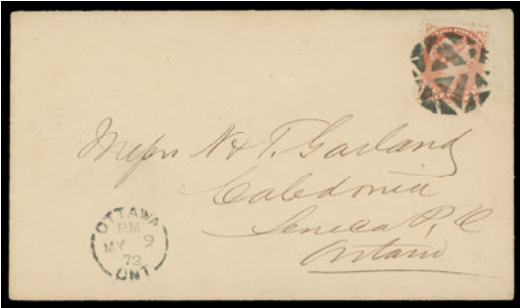 Messrs N & T. Garland
Caledonia
Seneca P. O
Ontario
OTTAWA
PM
MY 9
72
ONT